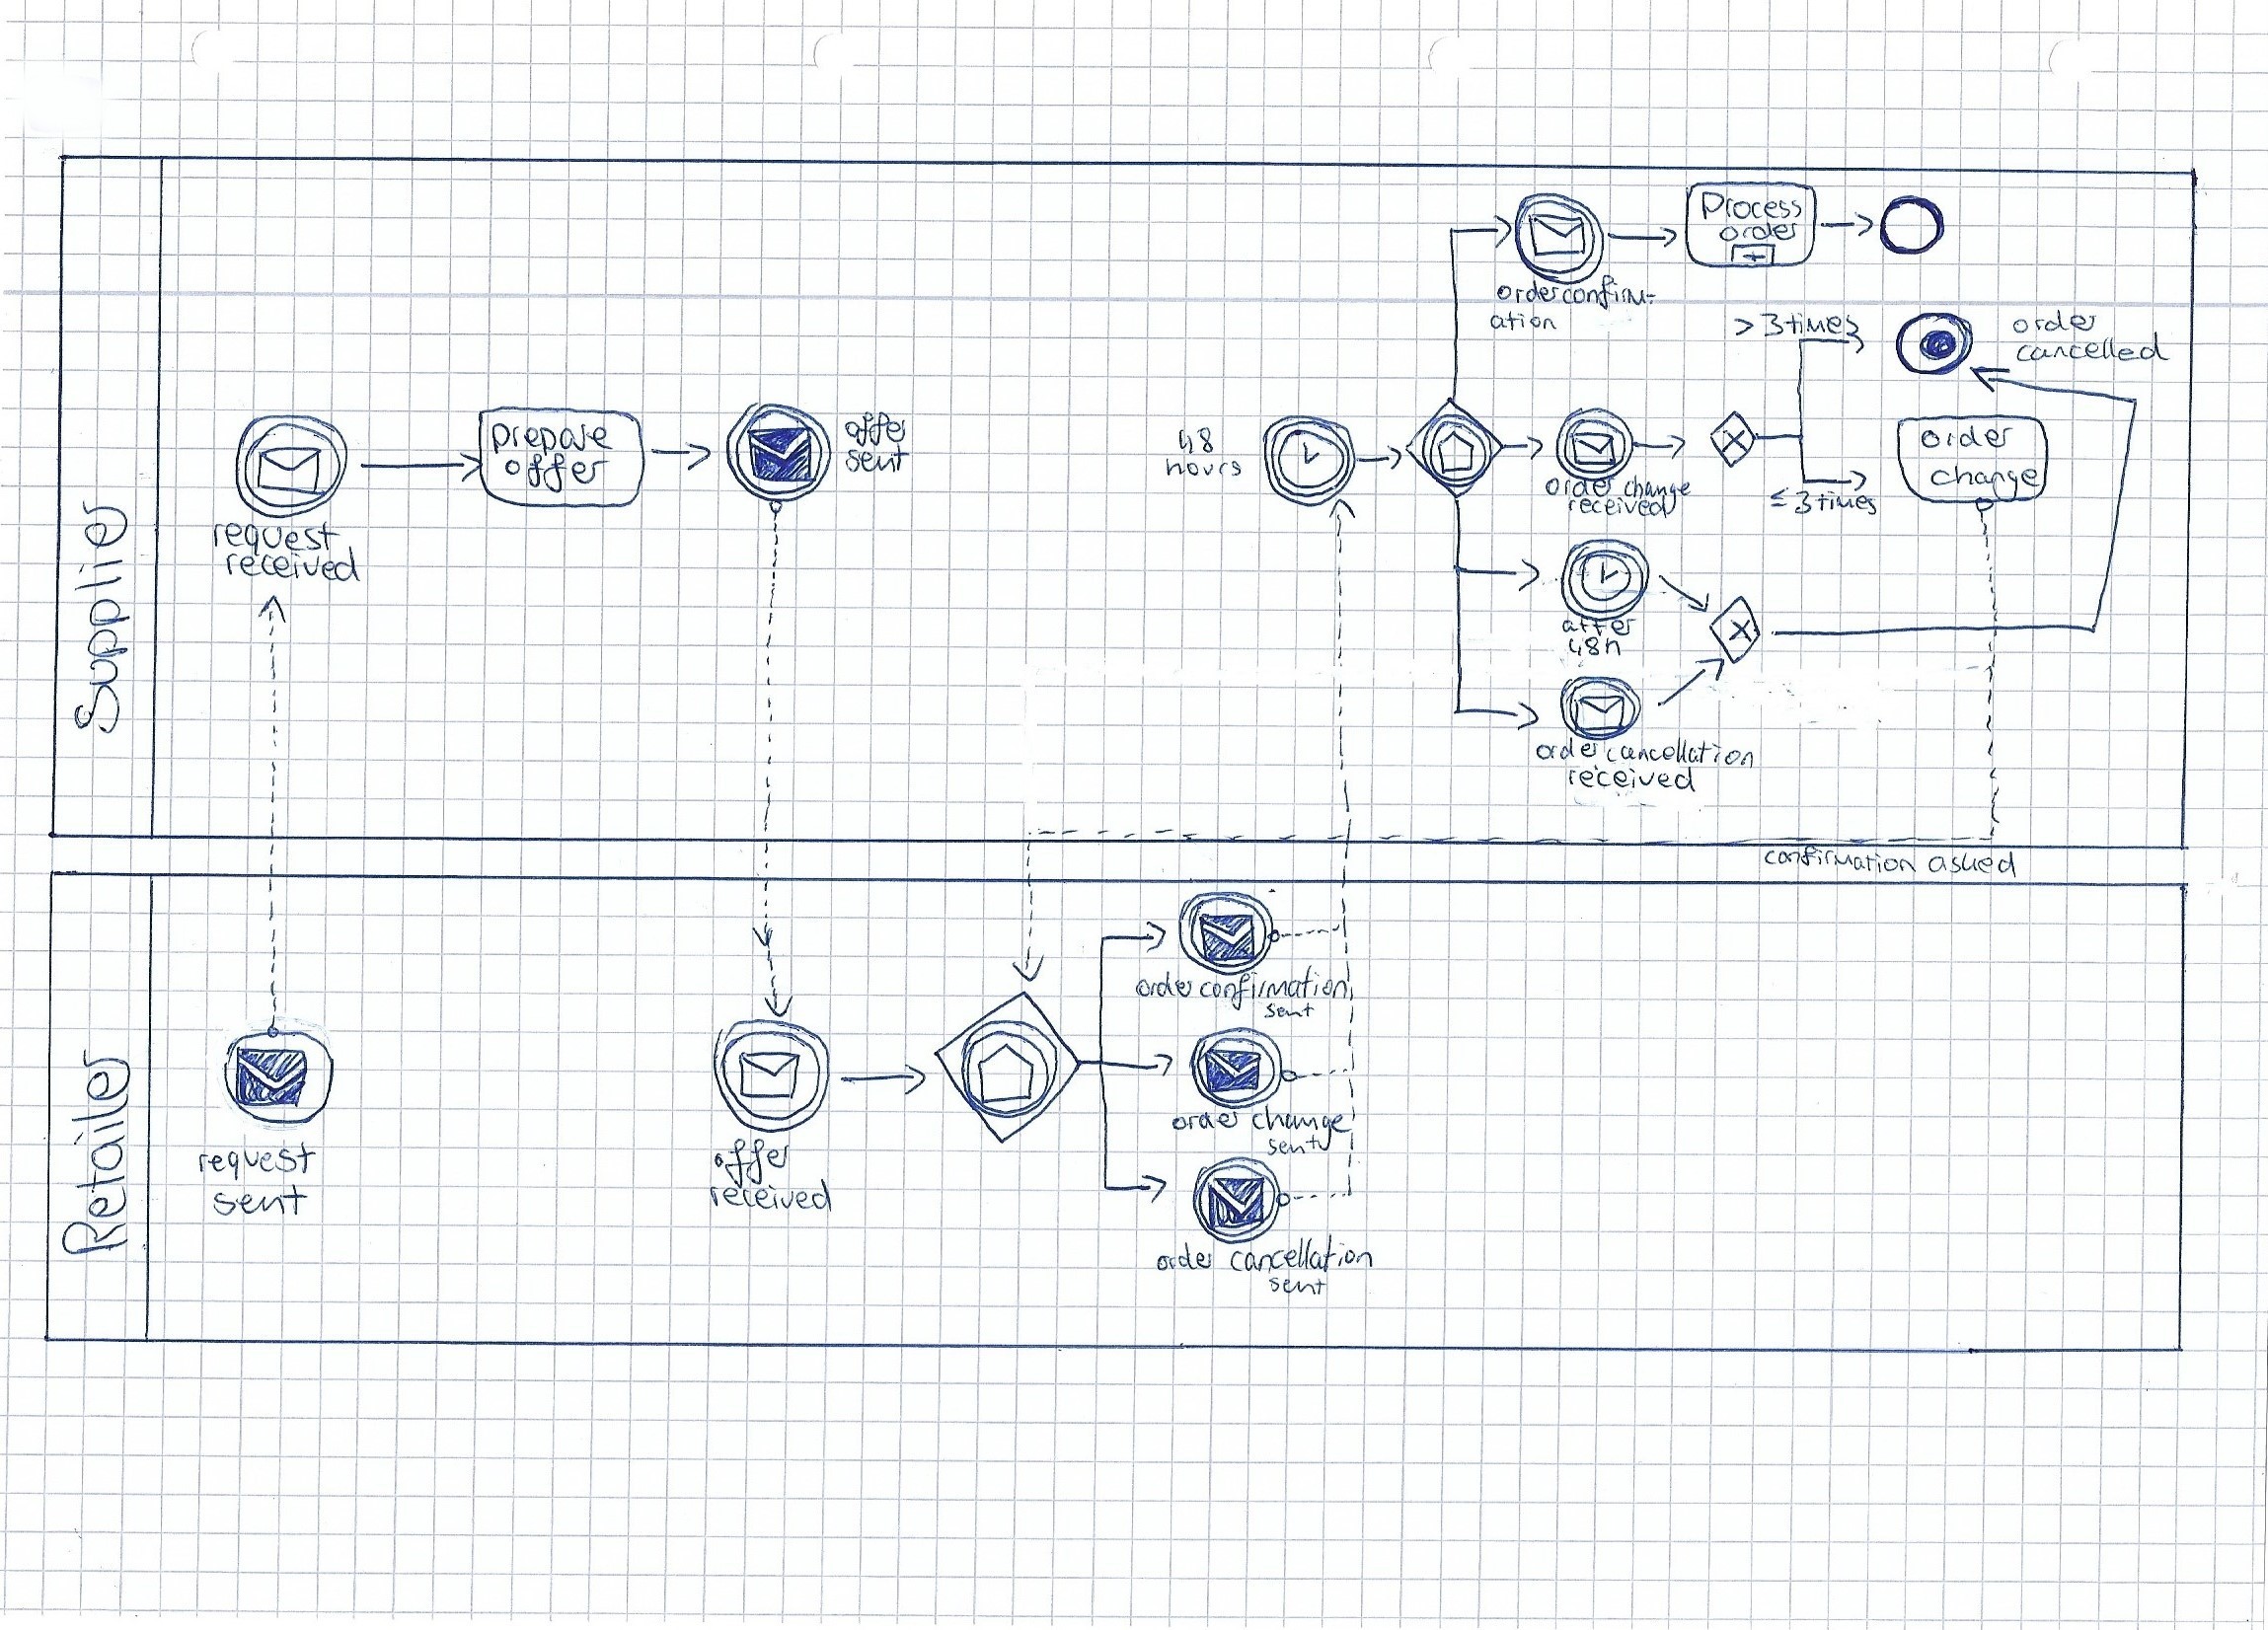 Supplier
request
received
prepare
offer
offer
sent
48
hours
order confirm-
ation
Process
order
+
> 3 times
order
cancelled
order change
received
≤ 3 times
order
change
after
48h
order cancellation
received
confirmation asked
Retailer
request
sent
offer
received
order confirmation
sent
order change
sent
order cancellation
sent